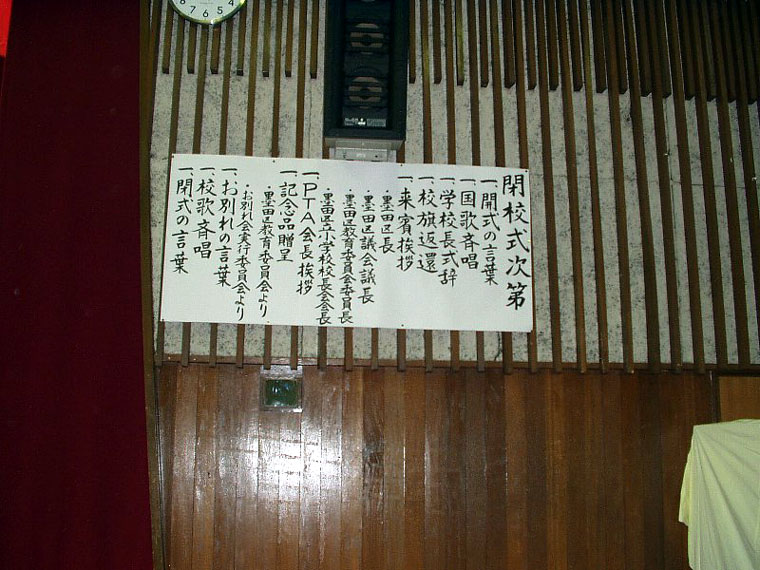 閉校式次第
一、開式の言葉
一、国歌斉唱
一、学校長式辞
一、校旗返還
一、来賓挨拶
・墨田区長
・墨田区議会議長
・墨田区教育委員会委員長
・墨田区立小学校校長会会長
一、PTA会長挨拶
一、記念品贈呈
・墨田区教育委員会より
・お別れ会実行委員会より
一、お別れの言葉
一、校歌斉唱
一、閉式の言葉
8 7 6 5 4